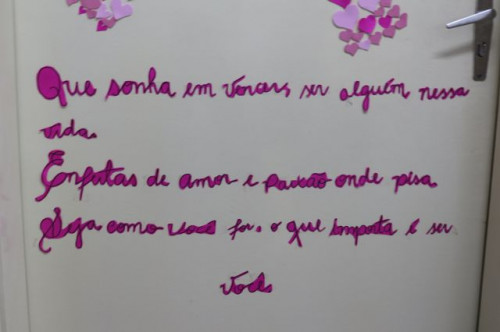 Que sonha em vencer, ser alguém nessa
vida.
Enfeitas de amor e paixão onde pisa.
Seja como você for, o que importa é ser
você.